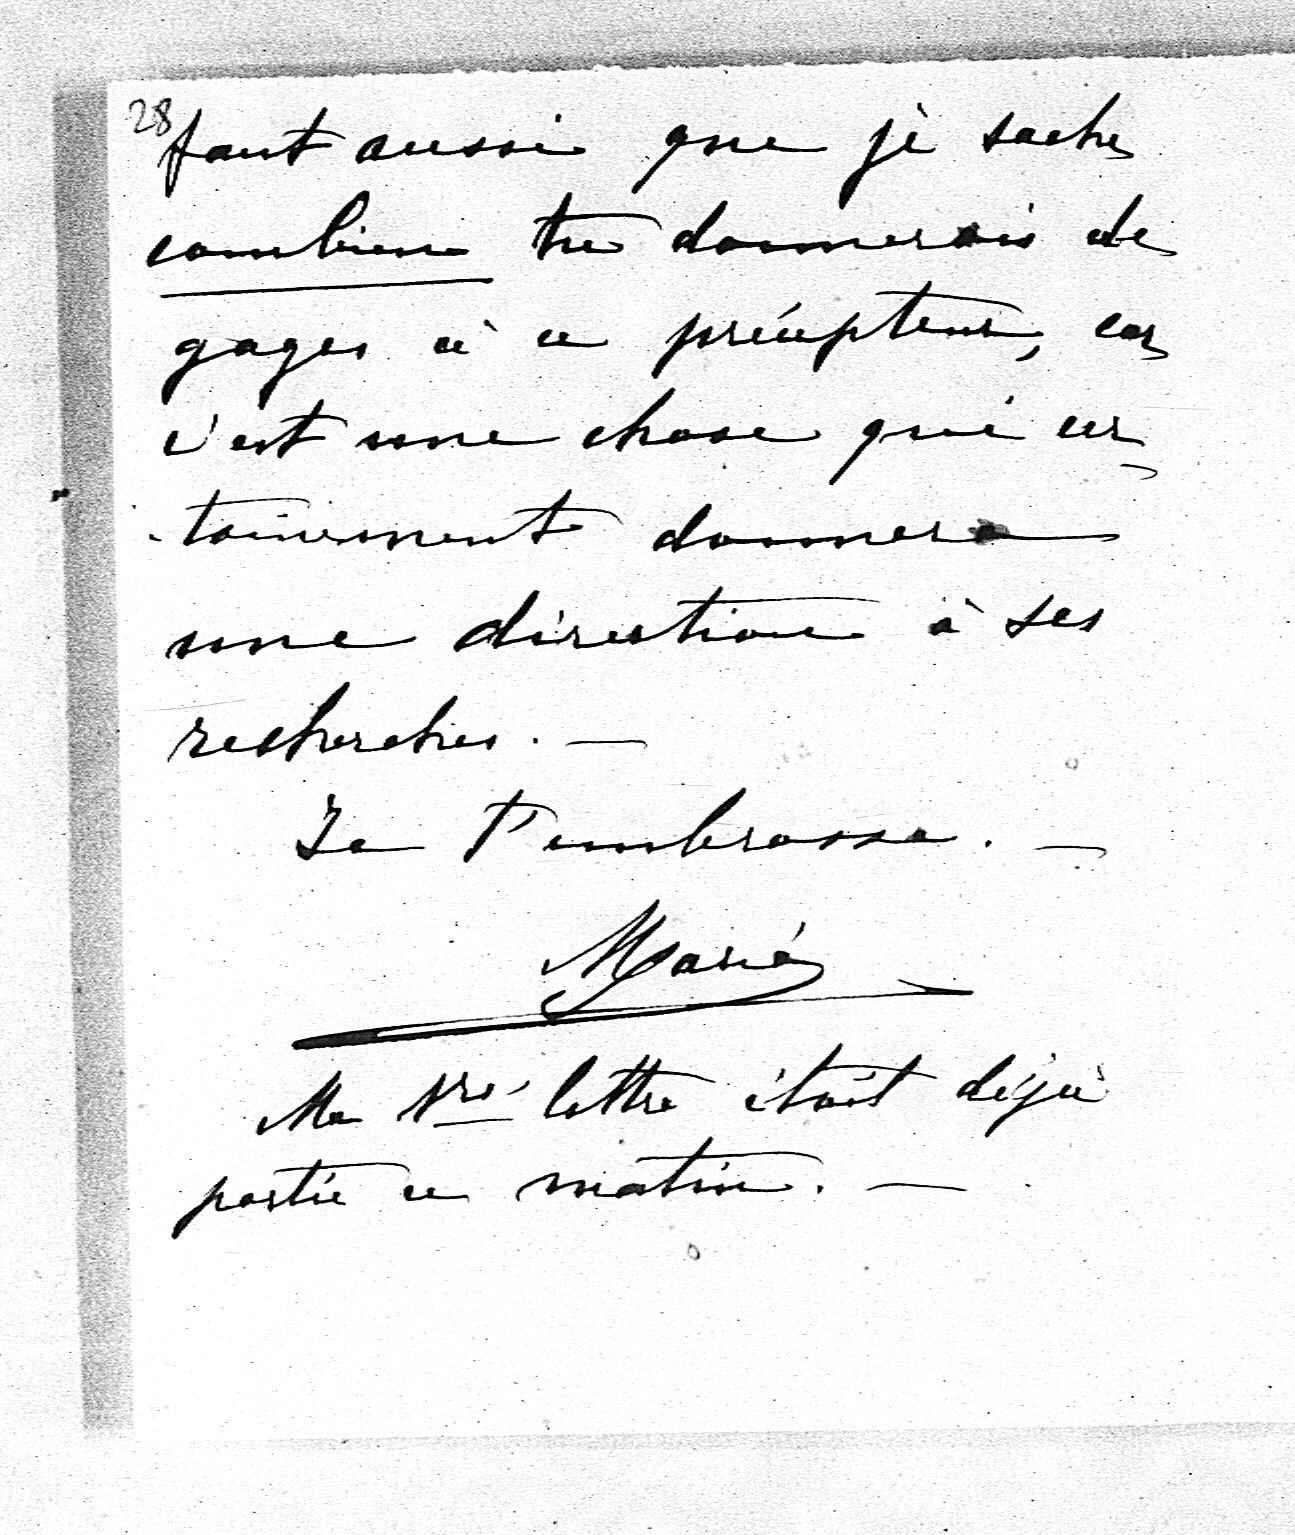 28
faut aussi que je sache
combien tu donnerais de
gages à ce précepteur, car
c'est une chose qui cer
-tainement donnera
une direction à ses
recherches. —
Je t'embrasse. —
Marie
Ma 1re lettre était déjà
partie ce matin. —